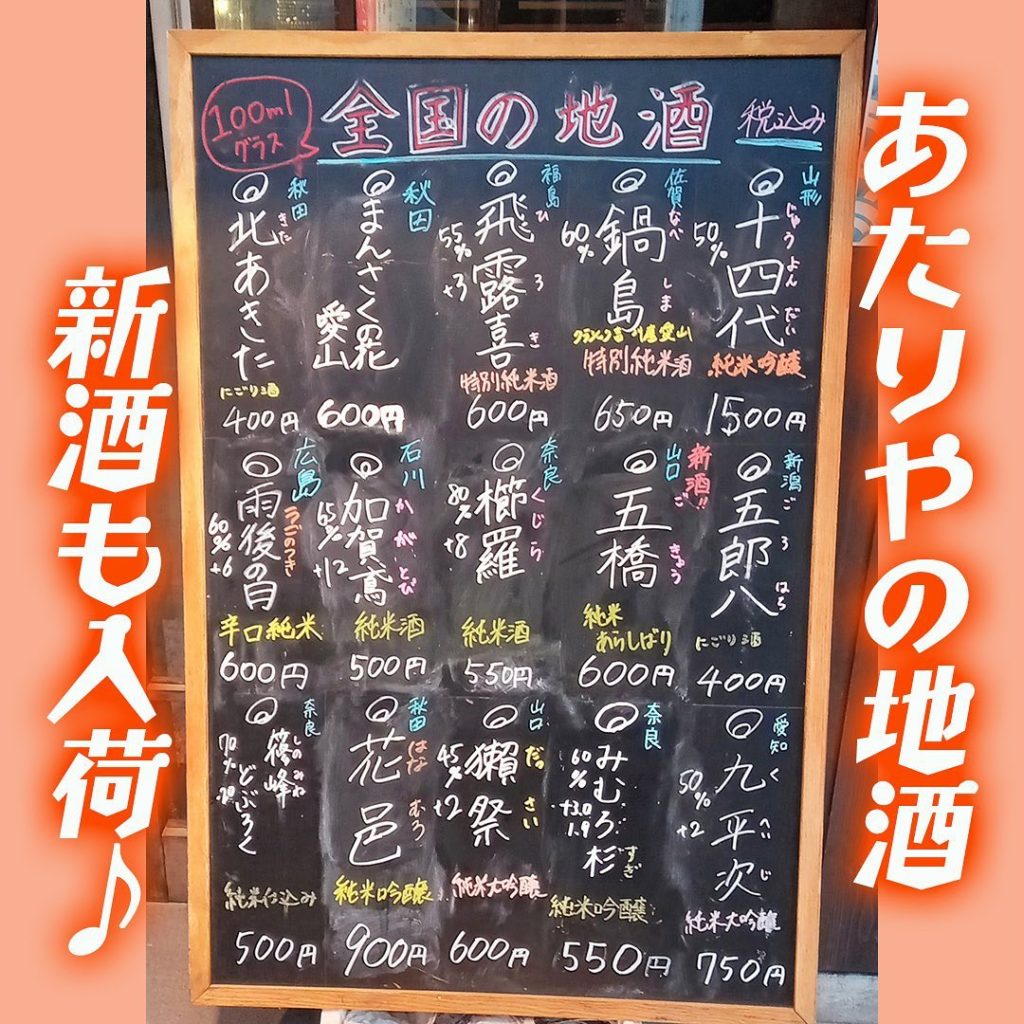 あたりやの地酒
新酒も入荷♪
100ml
グラス
全国の地酒
税込み
山形
◎十四代
じゅうよんだい
50%
純米吟醸
1500円
佐賀
◎鍋島
なべしま
60%
愛山
特別純米酒
650円
福島
◎飛露喜
ひろき
55%
+3
特別純米酒
600円
秋田
◎まんさくの花
愛山
600円
秋田
◎北あきた
きた
にごり酒
400円
新潟
◎五郎八
ごろはち
にごり酒
400円
新酒!!
山口
◎五橋
ごきょう
純米
あらしばり
600円
奈良
◎櫛羅
くじら
80%
+8
純米酒
550円
石川
◎加賀鳶
かがとび
65%
+12
純米酒
500円
広島
◎雨後の月
うごのつき
60%
+6
辛口純米
600円
愛知
◎九平次
くへいじ
50%
+2
純米大吟醸
750円
奈良
◎みむろ杉
すぎ
60%
+3.0
1.9
純米吟醸
550円
山口
◎獺祭
だっさい
45%
+2
純米大吟醸
600円
秋田
◎花邑
はなむら
純米吟醸
900円
奈良
◎篠峰
しのみね
どぶろく
70%
純米仕込み
500円